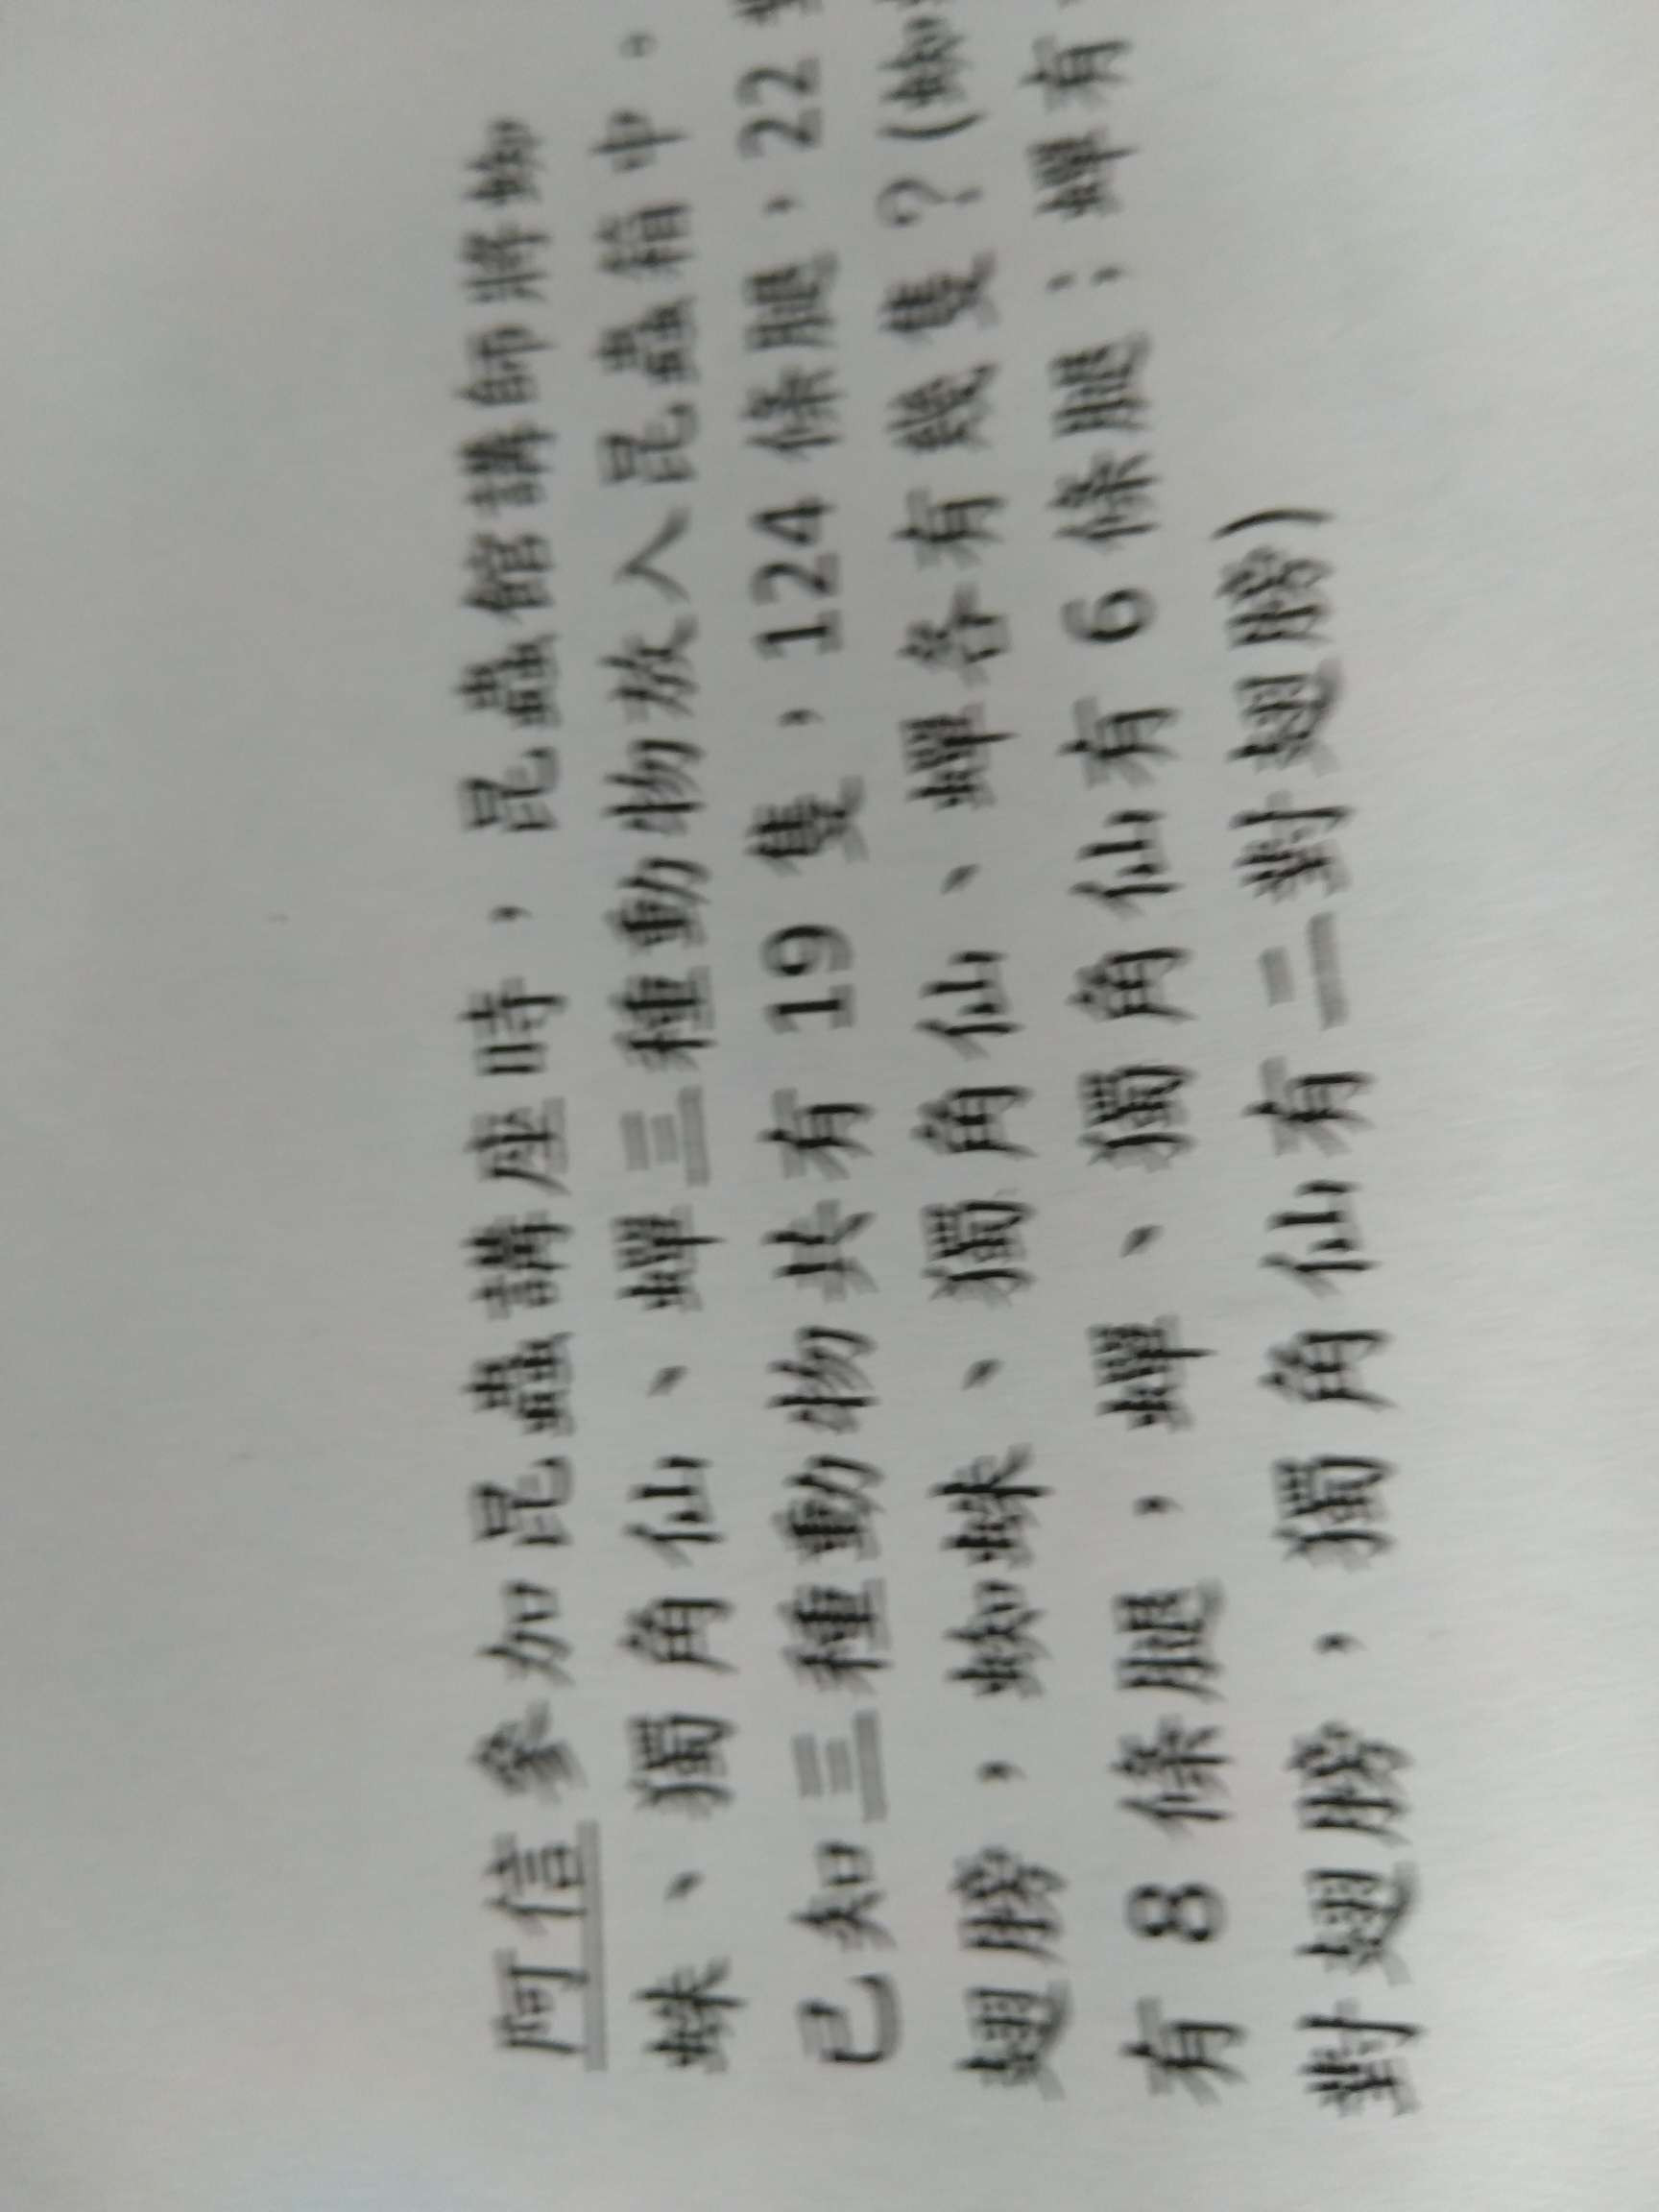 阿信參加昆蟲講座時，昆蟲館講師將蜘
蛛、獨角仙、蟬三種動物放入昆蟲箱中。
已知三種動物共有 19 隻，124 條腿，22
翅膀，蜘蛛、獨角仙、蟬各有幾隻？(蜘
有 8 條腿，蟬、獨角仙有 6 條腿；蟬有
對翅膀，獨角仙有二對翅膀)